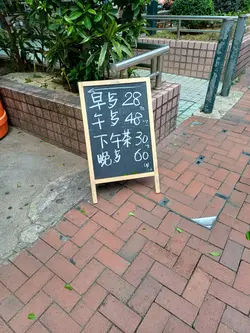 早与 28
午与 48
下午茶 30
晚与 60